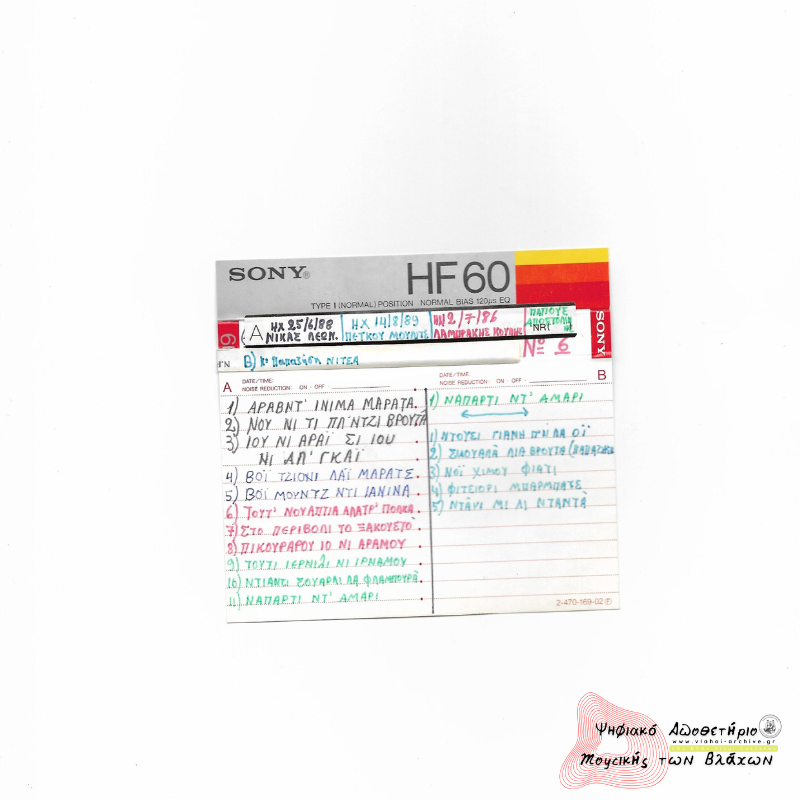 SONY®
HF 60
TYPE I (NORMAL) POSITION NORMAL BIAS 120µs EQ
A ΗΧ 25/6/88 ΗΧ 14/8/89 ΗΧ 2/7/86 ΠΑΠΟΥΣ
ΝΙΚΑΣ ΛΕΩΝ. ΠΕΤΚΟΥ ΜΟΥΛΤΣ ΛΑΜΠΡΑΚΗΣ NRt
SONY
Nº 6
B) Κ. ΝΙΤΣΑ
A DATE/TIME:
NOISE REDUCTION: ON · OFF ·
DATE/TIME: B
NOISE REDUCTION: ON · OFF ·
1) ΑΡΑΒΝΤ' ΙΝΙΜΑ ΜΑΡΑΤΑ.
2) ΝΟΥ ΝΙ ΤΙ ΠΛ'ΝΤΖΙ ΒΡΟΥΤΑ
3) ΙΟΥ ΝΙ ΑΡΑΪ ΣΙ ΙΟΥ
ΝΙ ΑΛ' ΓΚΑΪ
4) ΒΟΪ ΤΖΙΟΝΙ ΛΑΪ ΜΑΡΑΤΣ.
5) ΒΟΪ ΜΟΥΝΤΖ ΝΤΙ ΙΑΝΙΝΑ
6) ΤΟΥΤ' ΝΟΥΑΠΤΙΑ ΑΛΑΤΡ' ΠΟΛΚΑ
7) ΣΤΟ ΠΕΡΙΒΟΛΙ ΤΟ ΞΑΚΟΥΣΤΟ
8) ΠΙΚΟΥΡΑΡΟΥ ΙΟ ΝΙ ΑΡΑΜΟΥ
9) ΤΟΥΤΙ ΙΕΡΝΙΛΙ ΝΙ ΙΡΝΑΜΟΥ
10) ΝΤΙΑΝΤΙ ΣΟΥΑΡΛΙ ΛΑ ΦΛΑΜΠΟΥΡΑ
11) ΝΑΠΑΡΤΙ ΝΤ' ΑΜΑΡΙ
1) ΝΑΠΑΡΤΙ ΝΤ' ΑΜΑΡΙ
1) ΝΤΟΥΣΙ ΓΙΑΝΗ ΛΑ ΟΪ
2) ΣΚΟΥΑΛΑ ΛΙΑ ΒΡΟΥΤΑ
3) ΝΟΪ ΧΙΜΟΥ ΦΙΑΤΙ
4) ΦΙΤΣΙΟΡΙ ΜΠΑΡΜΠΑΤΣ
5) ΝΤΑΝΙ ΜΙ ΛΙ ΝΤΑΝΤΑ
2-470-169-02 Ⓟ
Ψηφιακό Αποθετήριο
www.vlahoi-archive.gr
Μουσικής των Βλάχων